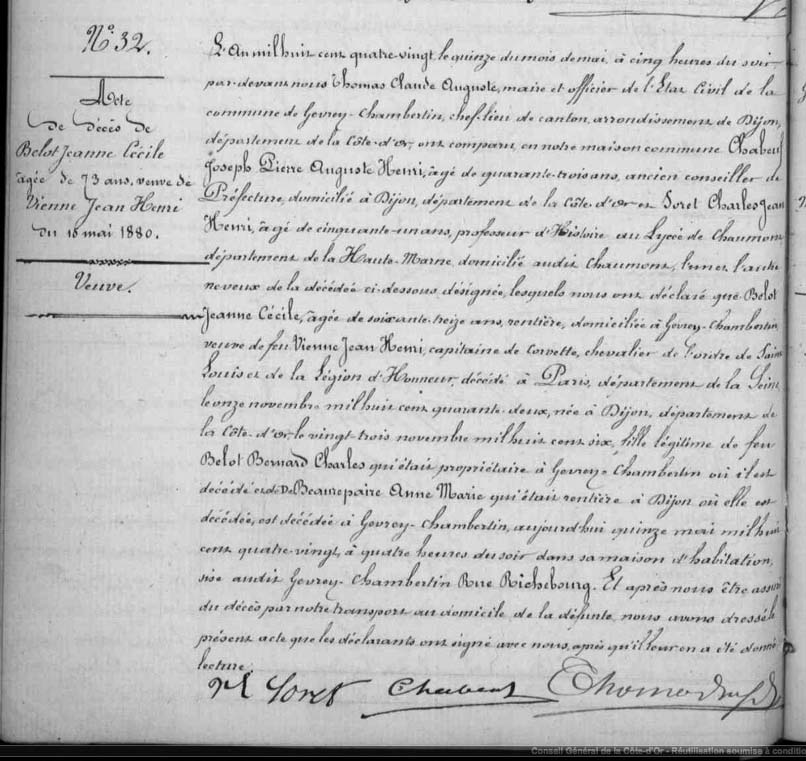 N° 32.
Acte
de décès de
Belot Jeanne Cécile
âgée de 73 ans, veuve de
Vienne Jean Henri
du 15 mai 1880.
Veuve.
L'An mil huit cent quatre-vingt, le quinze du mois de mai, à cinq heures du soir
par-devant nous Thomas Claude Auguste, maire et officier de l'Etat Civil de la
commune de Gevrey-Chambertin, chef-lieu de canton, arrondissement de Dijon,
département de la Côte-d'or, ont comparu, en notre maison commune Chabeuf
Joseph Pierre Auguste Henri, âgé de quarante-trois ans, ancien conseiller de
Préfecture, domicilié à Dijon, département de la Côte-d'or et Loret Charles Jean
Henri, âgé de cinquante-un ans, professeur d'Histoire au Lycée de Chaumont
département de la Haute-Marne, domicilié audit Chaumont, l'un et l'autre
neveux de la décédée ci-dessous désignée, lesquels nous ont déclaré que Belot
Jeanne Cécile, âgée de soixante-treize ans, rentière, domiciliée à Gevrey-Chambertin,
veuve de feu Vienne Jean Henri, capitaine de Corvette, chevalier de l'ordre de Saint
Louis et de la Légion d'Honneur, décédé à Paris, département de la Seine
le onze novembre mil huit cent quarante-deux, née à Dijon, département de
la Côte-d'or, le vingt-trois novembre mil huit cent six, fille légitime de feu
Belot Bernard Charles qu'était propriétaire à Gevrey-Chambertin où il est
décédé et de De Beaurepaire Anne Marie qu'était rentière à Dijon où elle est
décédée, est décédée à Gevrey-Chambertin, aujourd'hui quinze mai mil huit
cent quatre-vingt, à quatre heures du soir dans sa maison d'habitation,
sise audit Gevrey-Chambertin Rue Richebourg. Et après nous être assuré
du décès par notre transport au domicile de la défunte, nous avons dressé le
présent acte que les déclarants ont signé avec nous, après qu'il leur en a été donné
lecture.
Loret Chabeuf Thomas
Conseil Général de la Côte-d'Or - Réutilisation soumise à conditio